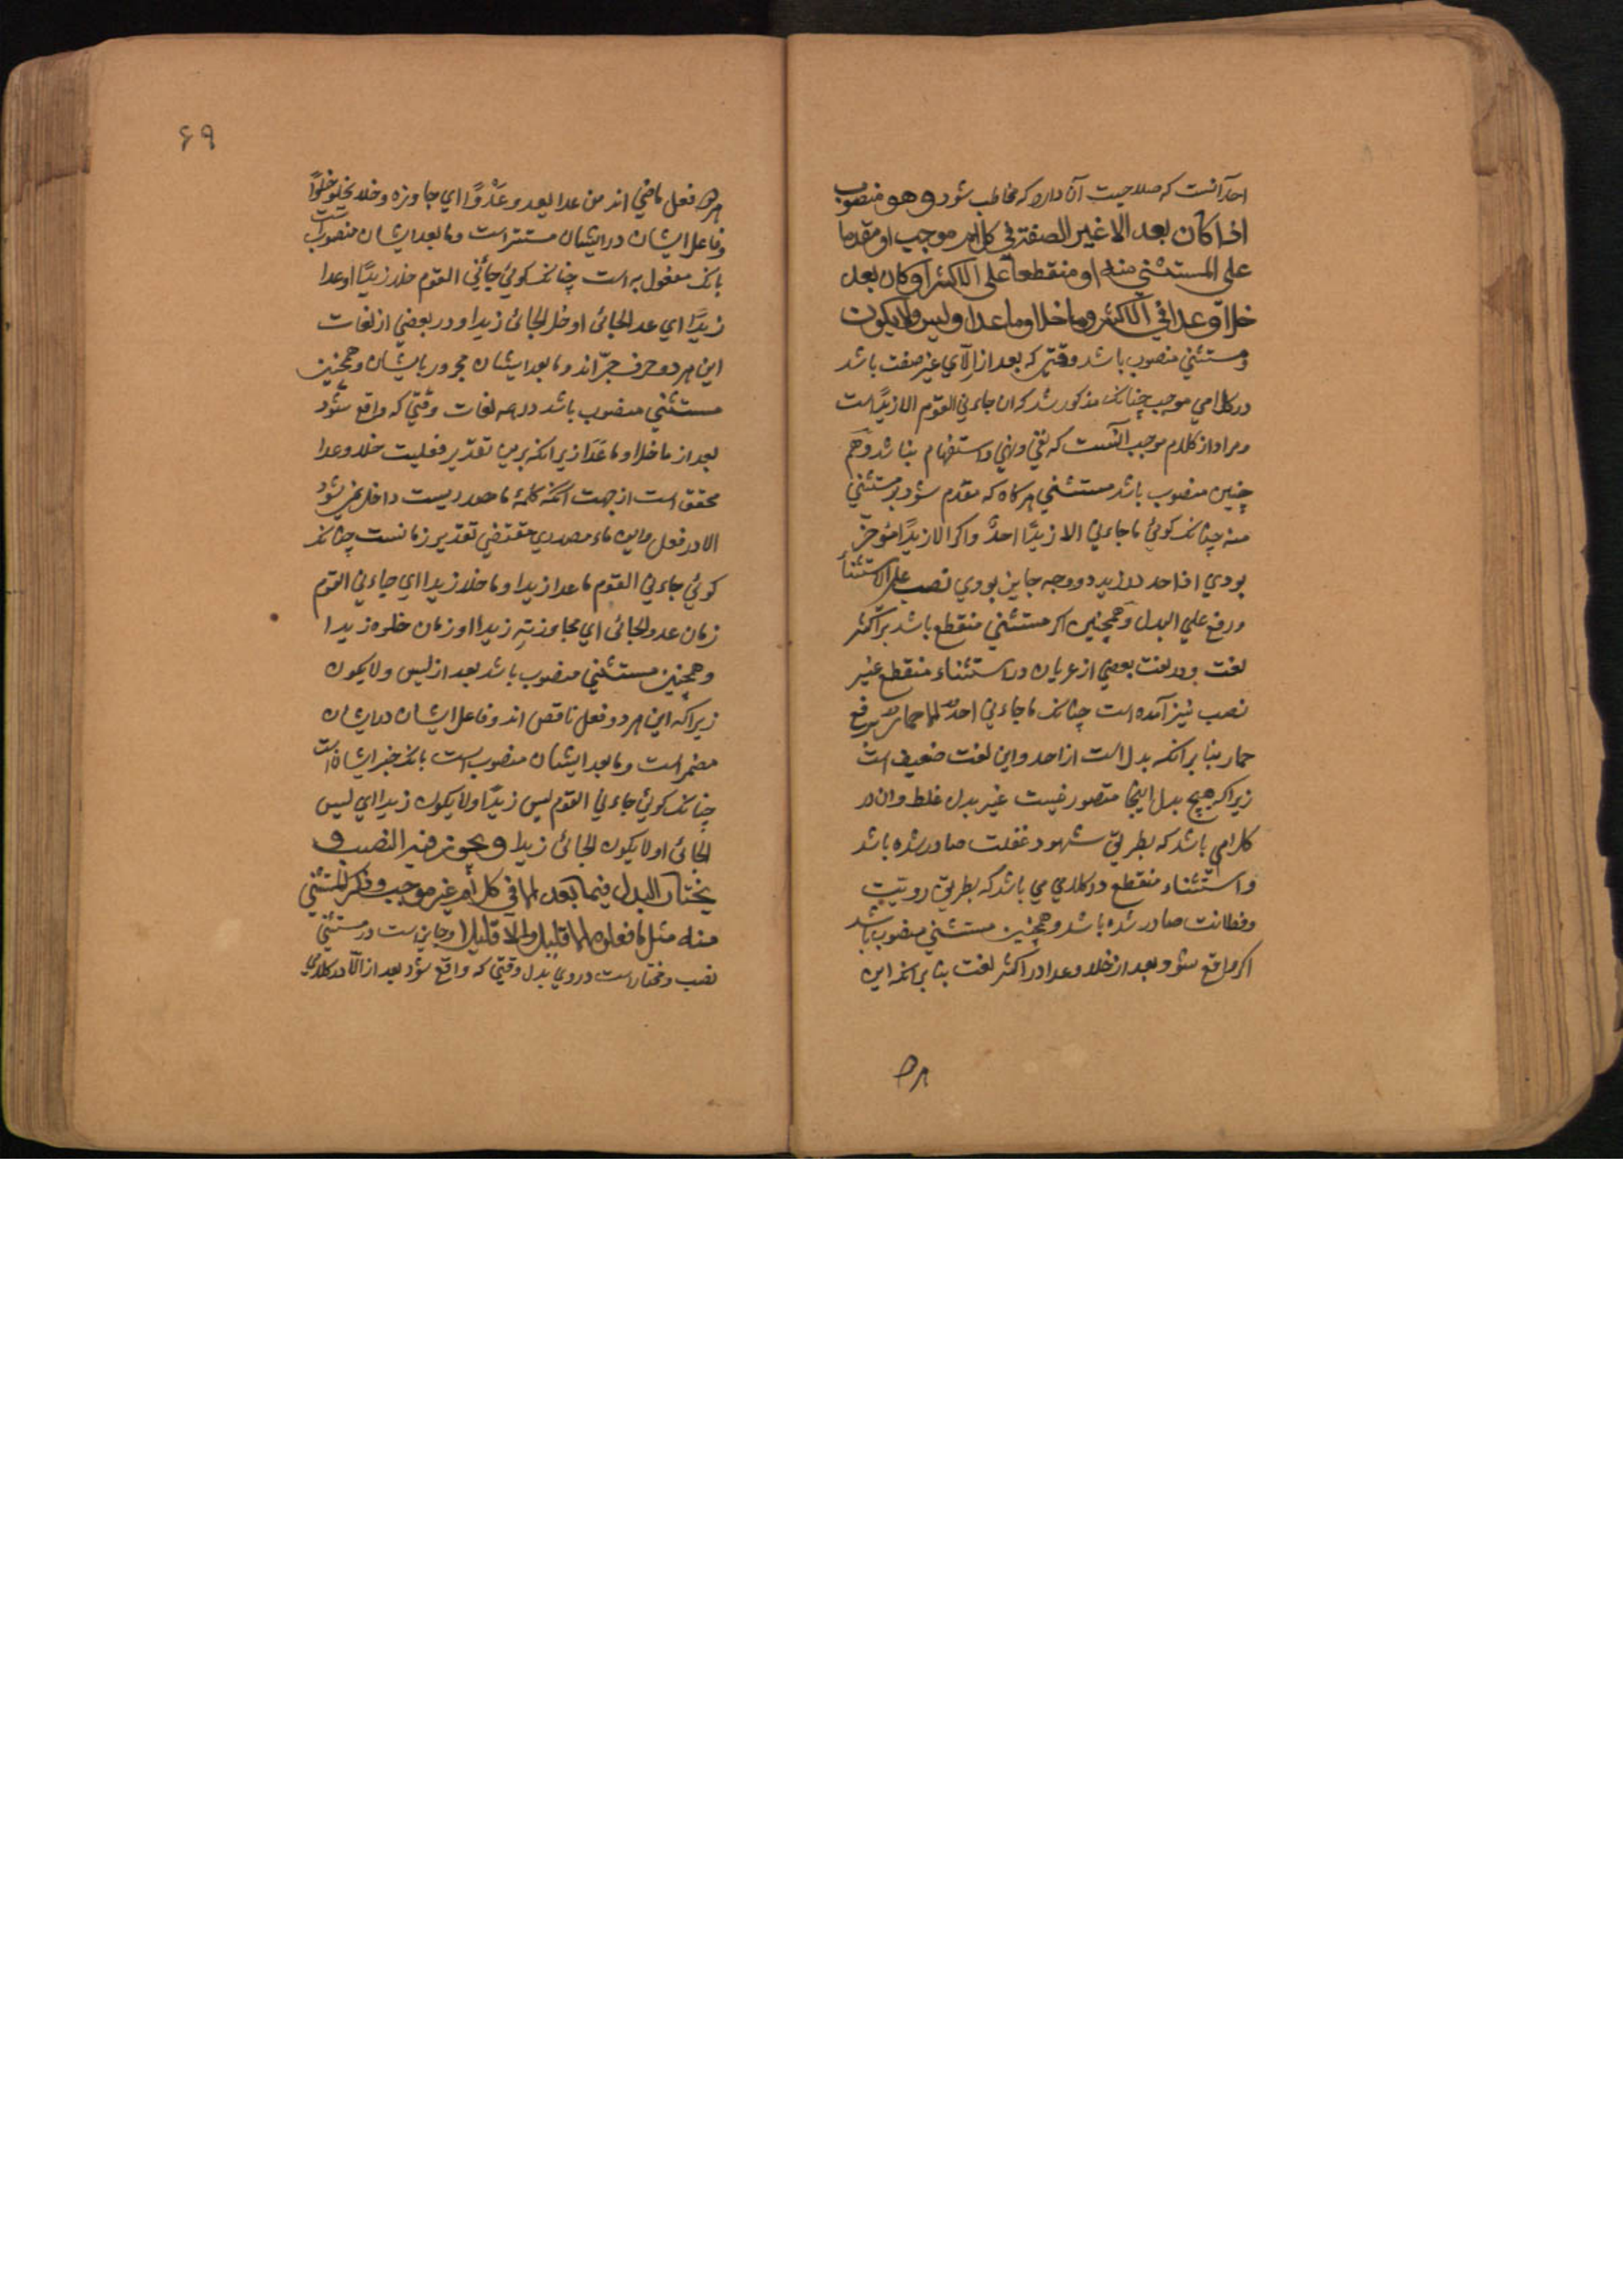 احد آنست که صلاحیت آن دارد که مخاطب شود وهو منصوب
اذا کان بعد الا غیر الصفة في کلام موجب او مقدما
علی المستثنی منه او منقطعا علی الاکثر او کان بعد
خلا وعدا في الاکثر وما خلا وما عدا ولیس ولا یکون
ومستثني منصوب باشد وقتي که بعد از الآي غیر صفت باشد
در کلامي موجب چنانک مذکور شد که آن جاءني القوم الا زیدًا است
ومراد از کلام موجب آنست که نفي ونهي واستفهام نباشد وهم
چنین منصوب باشد مستثني هرکاه که مقدم شود بر مستثني
منه چنانک کوئي ما جاءني الا زیدًا احدٌ واکر الا زیدًا مؤخر
بودي از احد در زید دو وجه جایز بودي نصب علي الاستثناء
ورفع علي البدل وهمچنین اکر مستثني منقطع باشد بر اکثر
لغت ودر لغت بعضي از عربان در استثناء منقطع غیر
نصب نیز آمده است چنانک ما جاءني احدٌ الا حمارٌ برفع
حمار بنا بر آنکه بدل است از احد واین لغت ضعیف است
زیراکه هیچ بدل اینجا متصور نیست غیر بدل غلط وان در
کلامي باشد که بطریق سهو وغفلت صادر شده باشد
واستثناء منقطع در کلامي مي باشد که بطریق رویّت
وفطانت صادر شده باشد وهمچنین مستثني منصوب باشد
اکر واقع شود بعد از خلا وعدا در اکثر لغت بنا بر آنکه این
۶۹
هر دو فعل ماضي اند من عدا یعدو عَدْوًا اي جاوزه وخلا یخلو خلوًّا
وفاعل ایشان در ایشان مستتر است وما بعد ایشان منصوب است
بانک مفعول به است چنانک کوئي جائني القوم خلا زیدًا او عدا
زیدًا اي عدا الجائي او خلا الجائي زیدا ودر بعضي از لغات
این هر دو حرف جرّ اند وما بعد ایشان مجرور بایشان وهمچنین
مستثني منصوب باشد در همه لغات وقتي که واقع شود
بعد از ما خلا وما عَدَا زیرا انکه برین تقدیر فعلیت خلا وعدا
محقق است از جهت آنکه کلمهٔ ما مصدریست داخل نمي شود
الا در فعل واین ماء مصدري مقتضي تقدیر زمانست چنانک
کوئي جاءني القوم ما عدا زیدا وما خلا زیدا اي جاءني القوم
زمان عدو الجائي اي مجاوزتهِ زیدا او زمان خلوه زیدا
وهمچنین مستثني منصوب باشد بعد از لیس ولا یکون
زیراکه این هر دو فعل ناقص اند وفاعل ایشان در ایشان
مضمر است وما بعد ایشان منصوب است بانک خبر ایشان است
چنانک کوئي جاءني القوم لیس زیدًا ولا یکون زیدا اي لیس
الجائي او لا یکون الجائي زیدا ویجوز فیه النصب و
یختار البدل فیما بعد الا في کلام غیر موجب وذکر المستثنی
منه مثل ما فعلوه الا قلیل والا قلیلا وجایز است در مستثني
نصب ومختار است در وي بدل وقتي که واقع شود بعد از الّا در کلامي